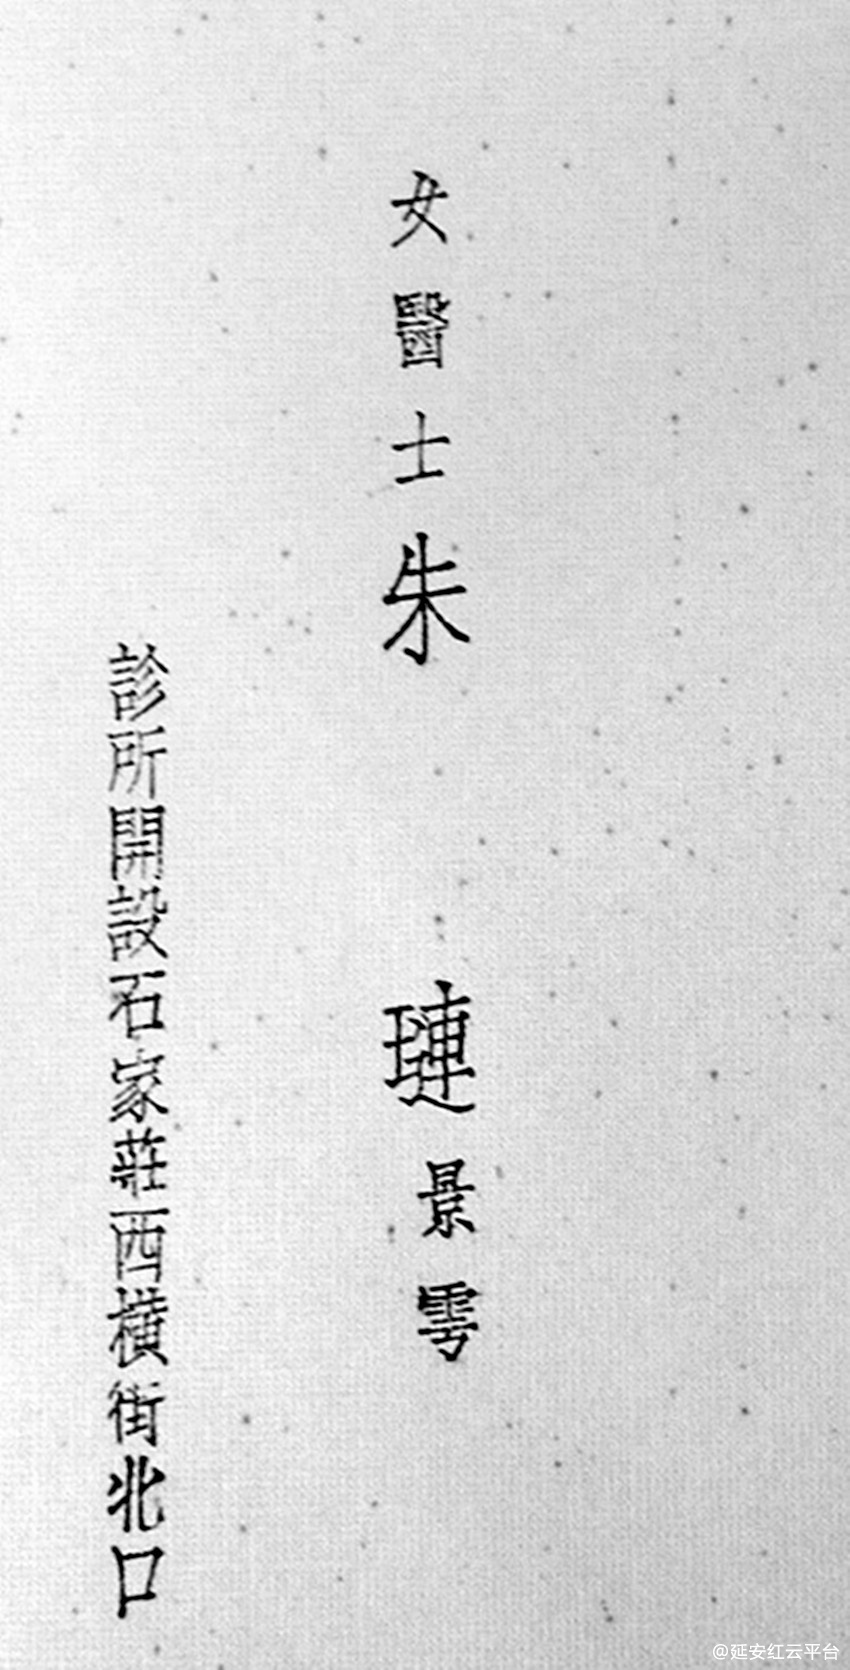 女醫士朱璉景雩
診所開設石家莊西橫街北口
@延安红云平台